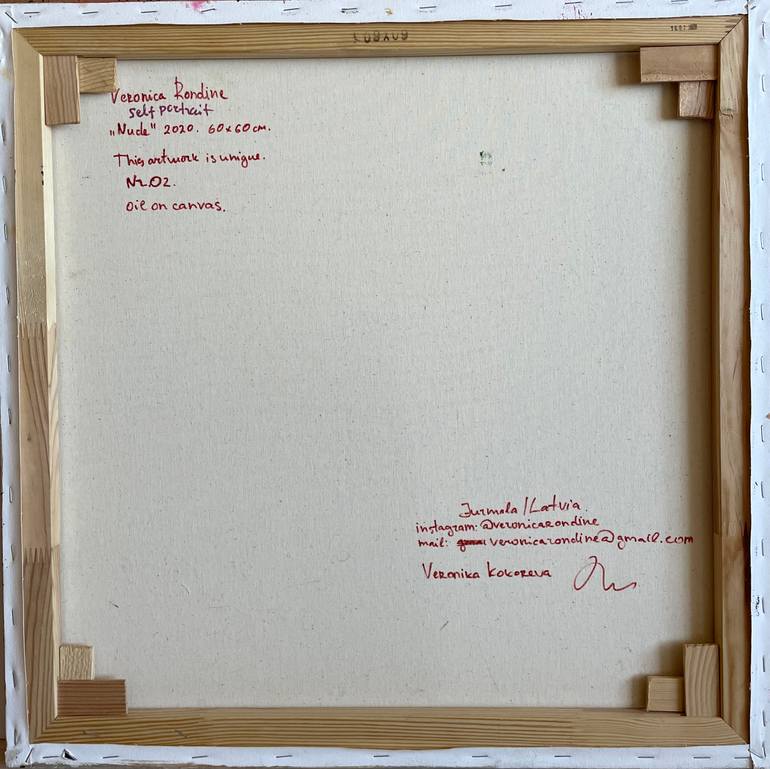 60x60
Veronica Rondine
self portrait
„Nude" 2020. 60x60 cm.
This artwork is unique.
Nr. 02.
oil on canvas.
Jurmala / Latvia.
instagram: @veronicarondine
mail: veronicarondine@gmail.com
Veronika Kokoreva